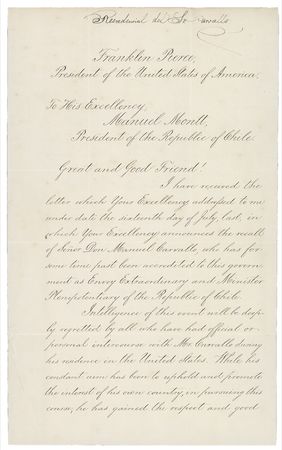 Recredencial del Sr Carvallo
Franklin Pierce,
President of the United States of America,
To His Excellency,
Manuel Montt,
President of the Republic of Chile.
Great and Good Friend!
I have received the
letter which Your Excellency addressed to me
under date the sixteenth day of July, last, in
which Your Excellency announces the recall
of Senor Don Manuel Carvallo, who has for
some time past been accredited to this govern
ment as Envoy Extraordinary and Minister
Plenipotentiary of the Republic of Chile.
Intelligence of this event will be deep-
ly regretted by all who have had official or
personal intercourse with Mr. Carvallo during
his residence in the United States. While his
constant aim has been to uphold and promote
the interest of his own country, in pursuing this
course, he has gained the respect and good